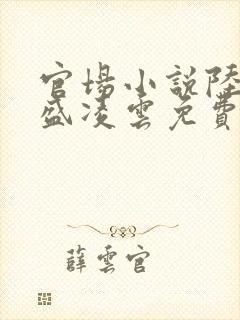 官場小說陸
盛凌雲免費
薛雲官